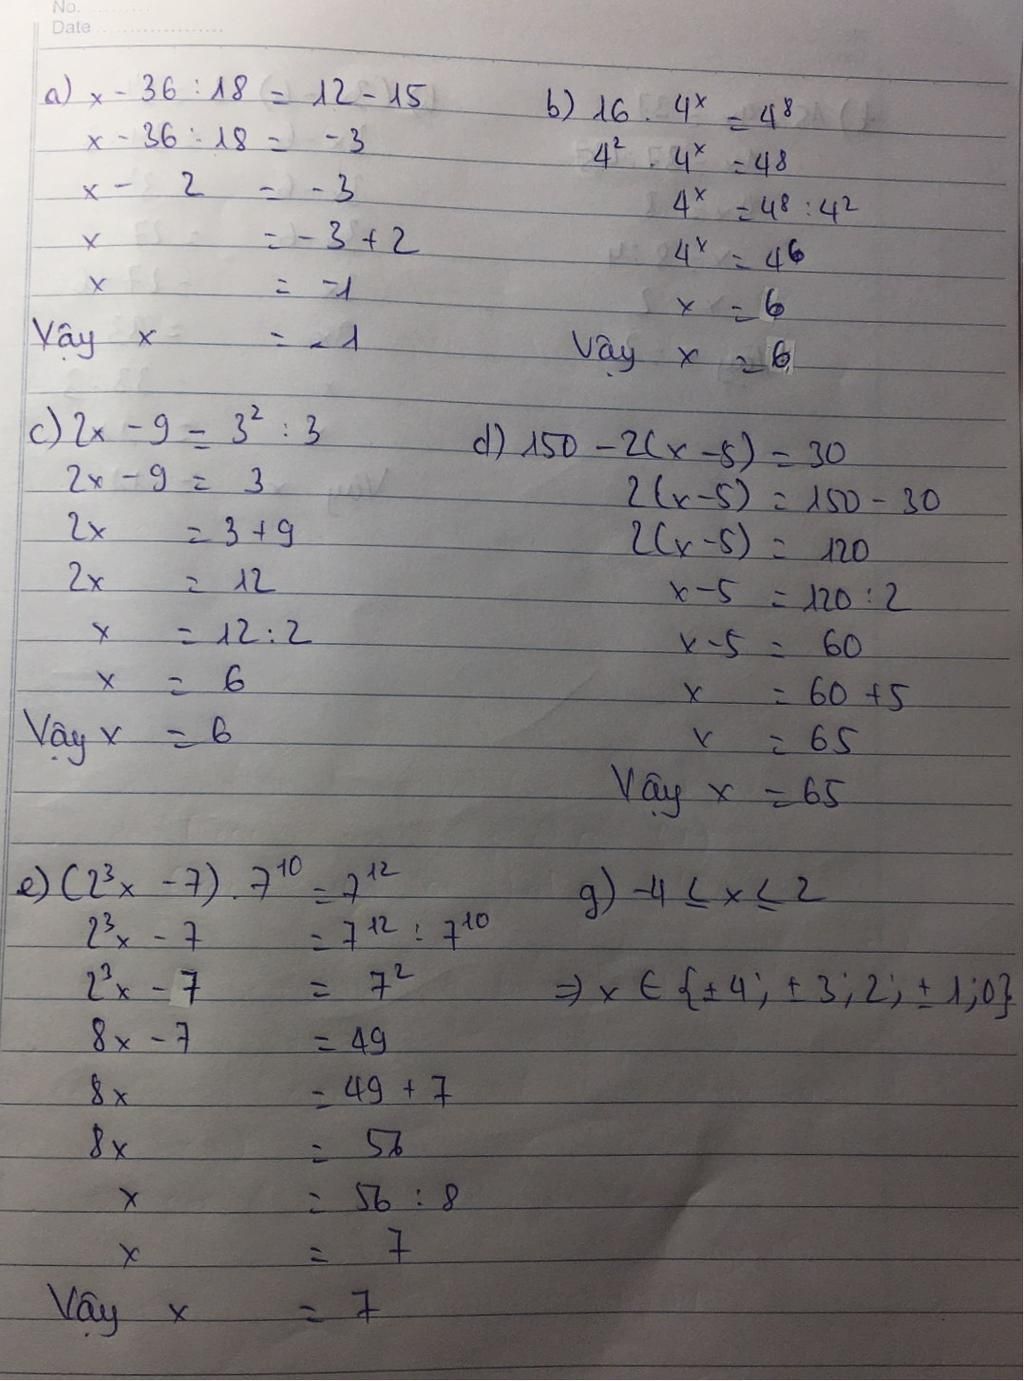 No. ............
Date .....................
a) x - 36 : 18 = 12 - 15
x - 36 : 18 = -3
x - 2 = -3
x = -3 + 2
x = -1
Vậy x = -1
b) 16 . 4ˣ = 4⁸
4² . 4ˣ = 4⁸
4ˣ = 4⁸ : 4²
4ˣ = 4⁶
x = 6
Vậy x = 6
c) 2x - 9 = 3² : 3
2x - 9 = 3
2x = 3 + 9
2x = 12
x = 12 : 2
x = 6
Vậy x = 6
d) 150 - 2(x - 5) = 30
2(x - 5) = 150 - 30
2(x - 5) = 120
x - 5 = 120 : 2
x - 5 = 60
x = 60 + 5
x = 65
Vậy x = 65
e) (2³x - 7) . 7¹⁰ = 7¹²
2³x - 7 = 7¹² : 7¹⁰
2³x - 7 = 7²
8x - 7 = 49
8x = 49 + 7
8x = 56
x = 56 : 8
x = 7
Vậy x = 7
g) -4 ≤ x ≤ 2
⇒ x ∈ {±4; ±3; 2; ±1; 0}